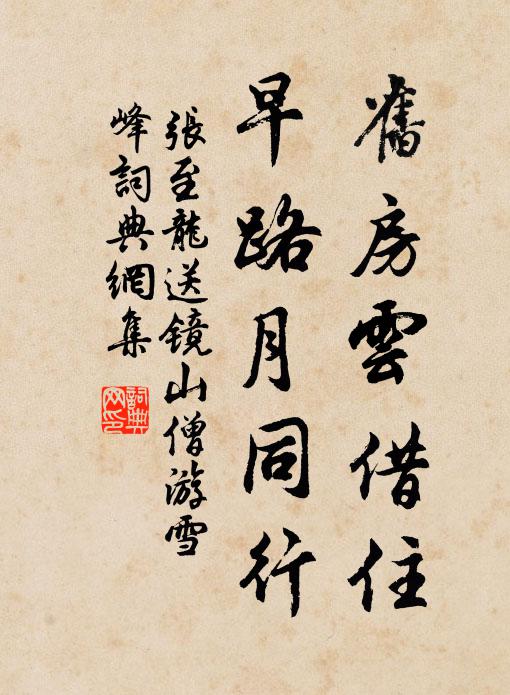 舊房雲借住
早路月同行
張至龍送鏡山僧游雪
峰詞典網集
詞典
网印